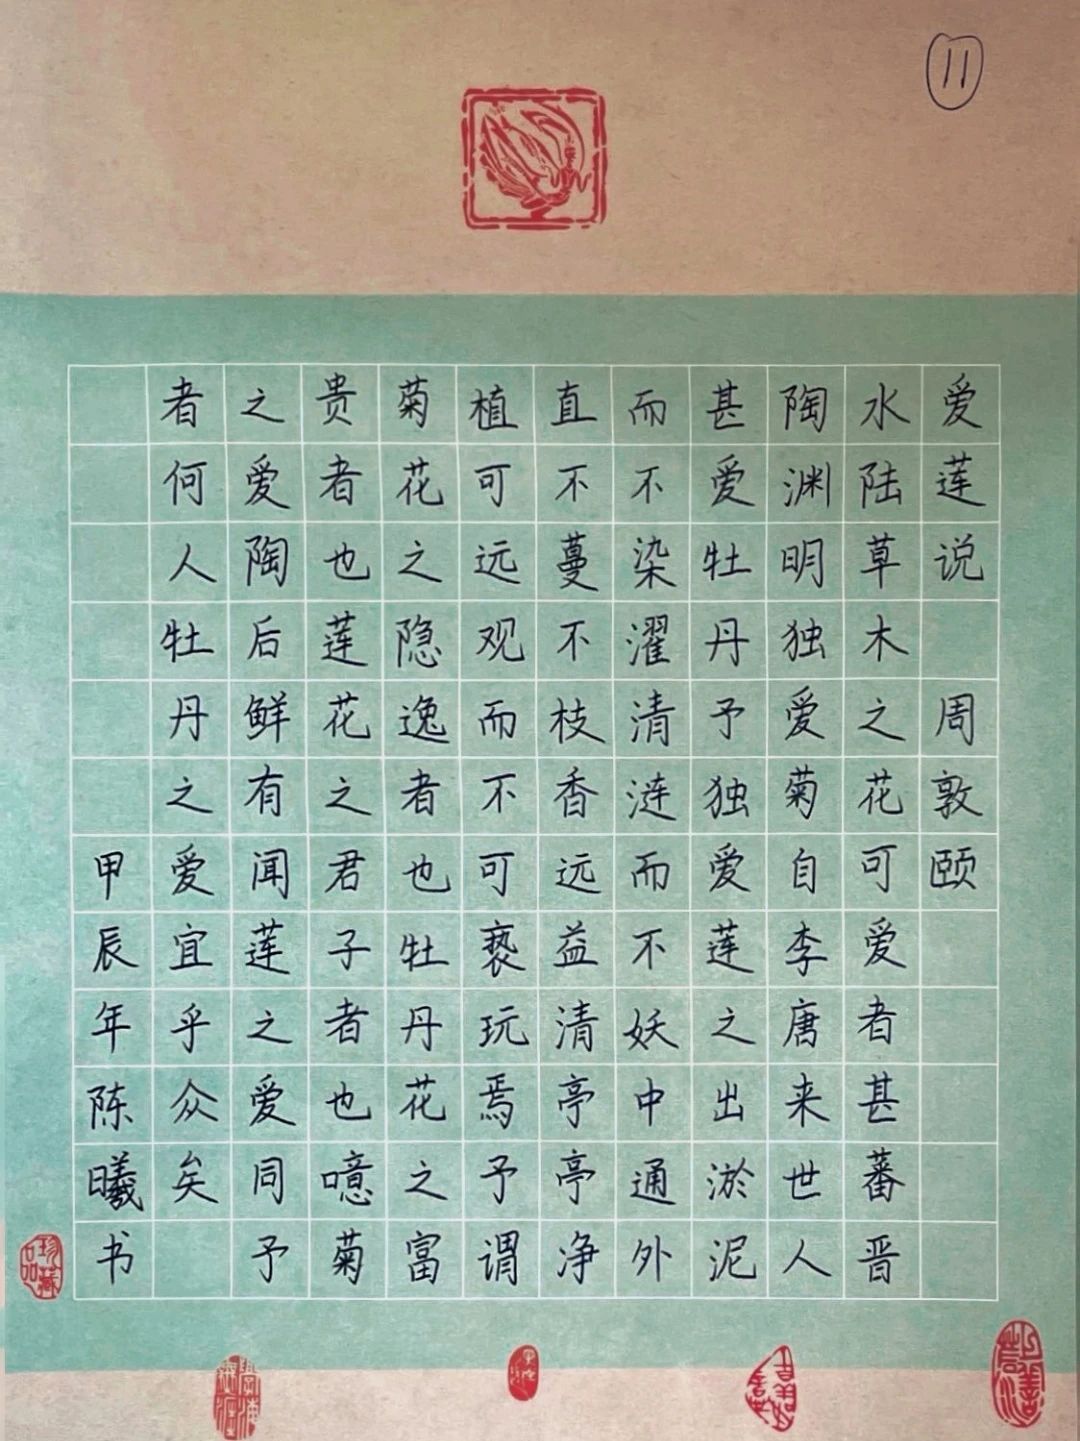 11
爱莲说 周敦颐
水陆草木之花可爱者甚蕃晋
陶渊明独爱菊自李唐来世人
甚爱牡丹予独爱莲之出淤泥
而不染濯清涟而不妖中通外
直不蔓不枝香远益清亭亭净
植可远观而不可亵玩焉予谓
菊花之隐逸者也牡丹花之富
贵者也莲花之君子者也噫菊
之爱陶后鲜有闻莲之爱同予
者何人牡丹之爱宜乎众矣
甲辰年陈曦书
珍藏品